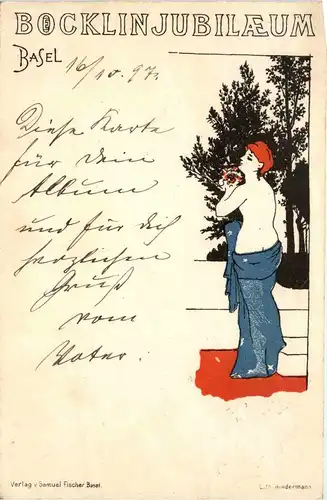 BÖCKLINJUBILÆUM
BASEL
16/10.97.
Diese Karte
für dein
Album
und für dich
herzlichen
Gruß
vom
Vater.
Verlag v Samuel Fischer Basel.
Lith.